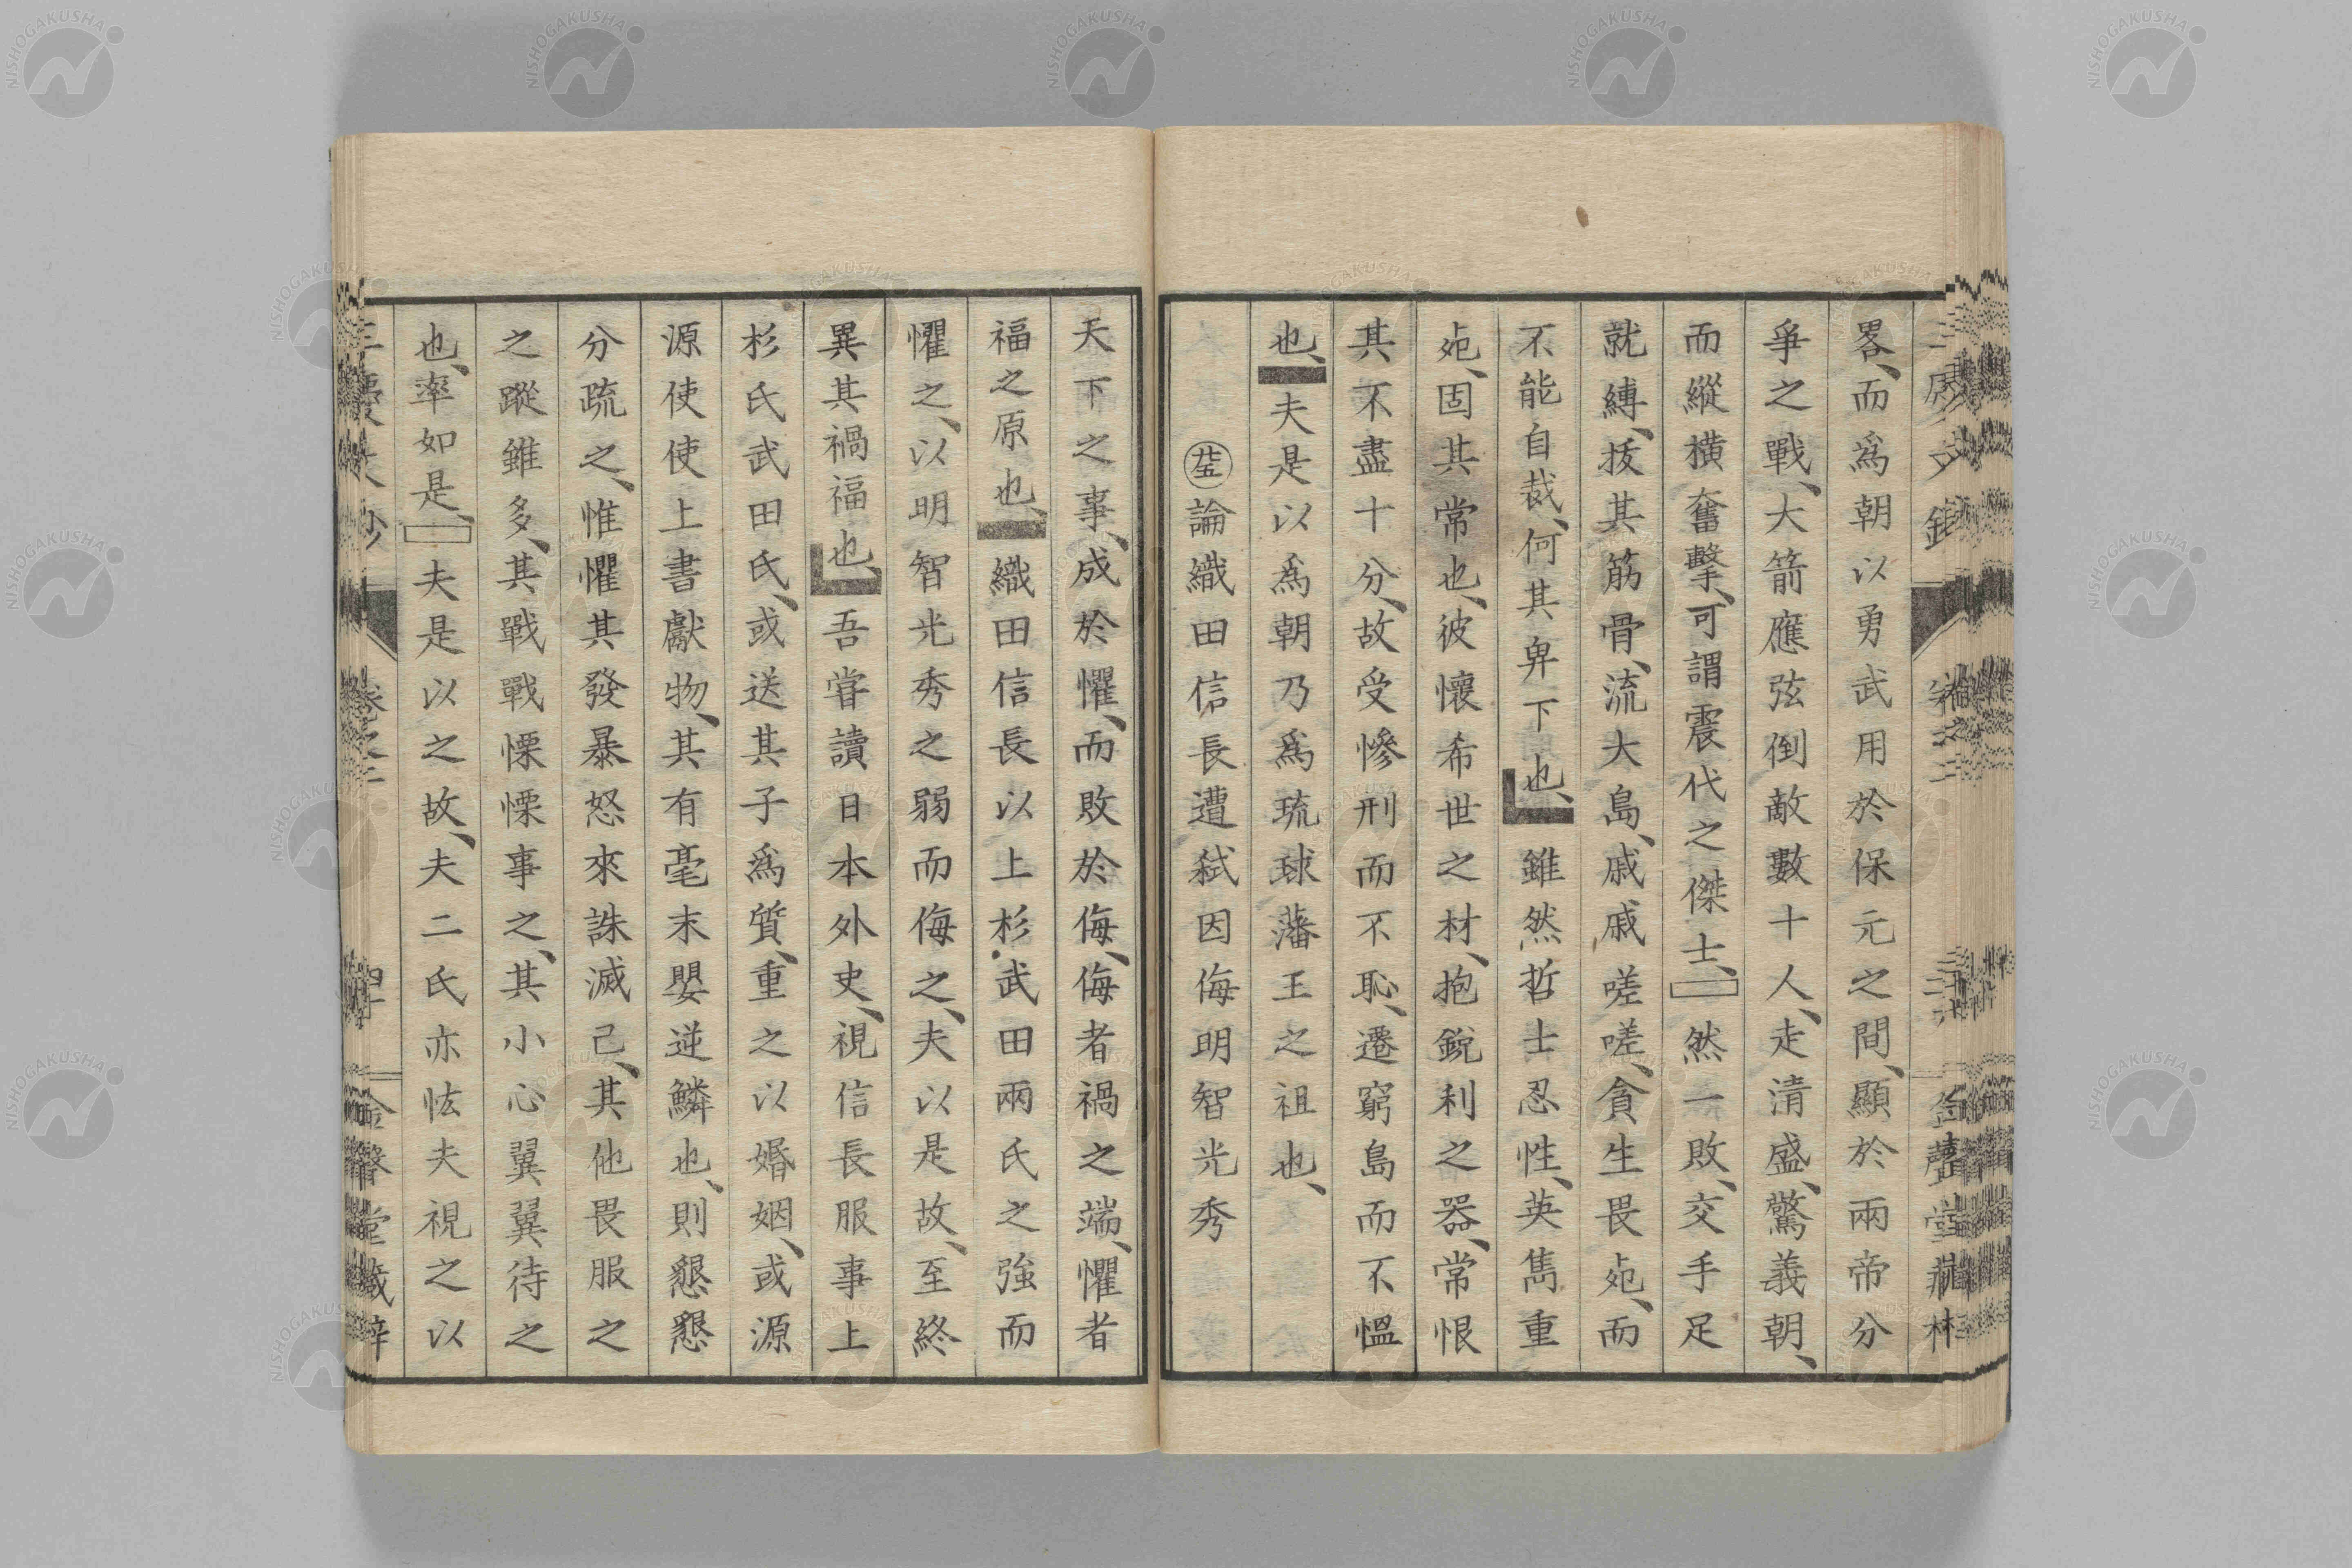 畧、而爲朝以勇武用於保元之間、顯於兩帝分
爭之戰、大箭應弦倒敵數十人、走清盛、驚義朝、
而縱橫奮擊、可謂震代之傑士、然一敗、交手足
就縛、拔其筋骨、流大島、戚戚嗟嗟、貪生畏死、而
不能自裁、何其卑下也、雖然哲士忍性、英雋重
死、固其常也、彼懷希世之材、抱銳利之器、常恨
其不盡十分、故受慘刑而不恥、遷窮島而不慍
也、夫是以爲朝乃爲琉球藩王之祖也、
㉕論織田信長遭弑因侮明智光秀
天下之事、成於懼、而敗於侮、侮者禍之端、懼者
福之原也、織田信長以上杉武田兩氏之強而
懼之、以明智光秀之弱而侮之、夫以是故、至終
異其禍福也、吾嘗讀日本外史、視信長服事上
杉氏武田氏、或送其子爲質、重之以婚姻、或源
源使使上書獻物、其有毫末嬰逆鱗也、則懇懇
分疏之、惟懼其發暴怒來誅滅己、其他畏服之
之蹤雖多、其戰戰慄慄事之、其小心翼翼待之
也、率如是、夫是以之故、夫二氏亦怯夫視之以
金聲堂藏梓